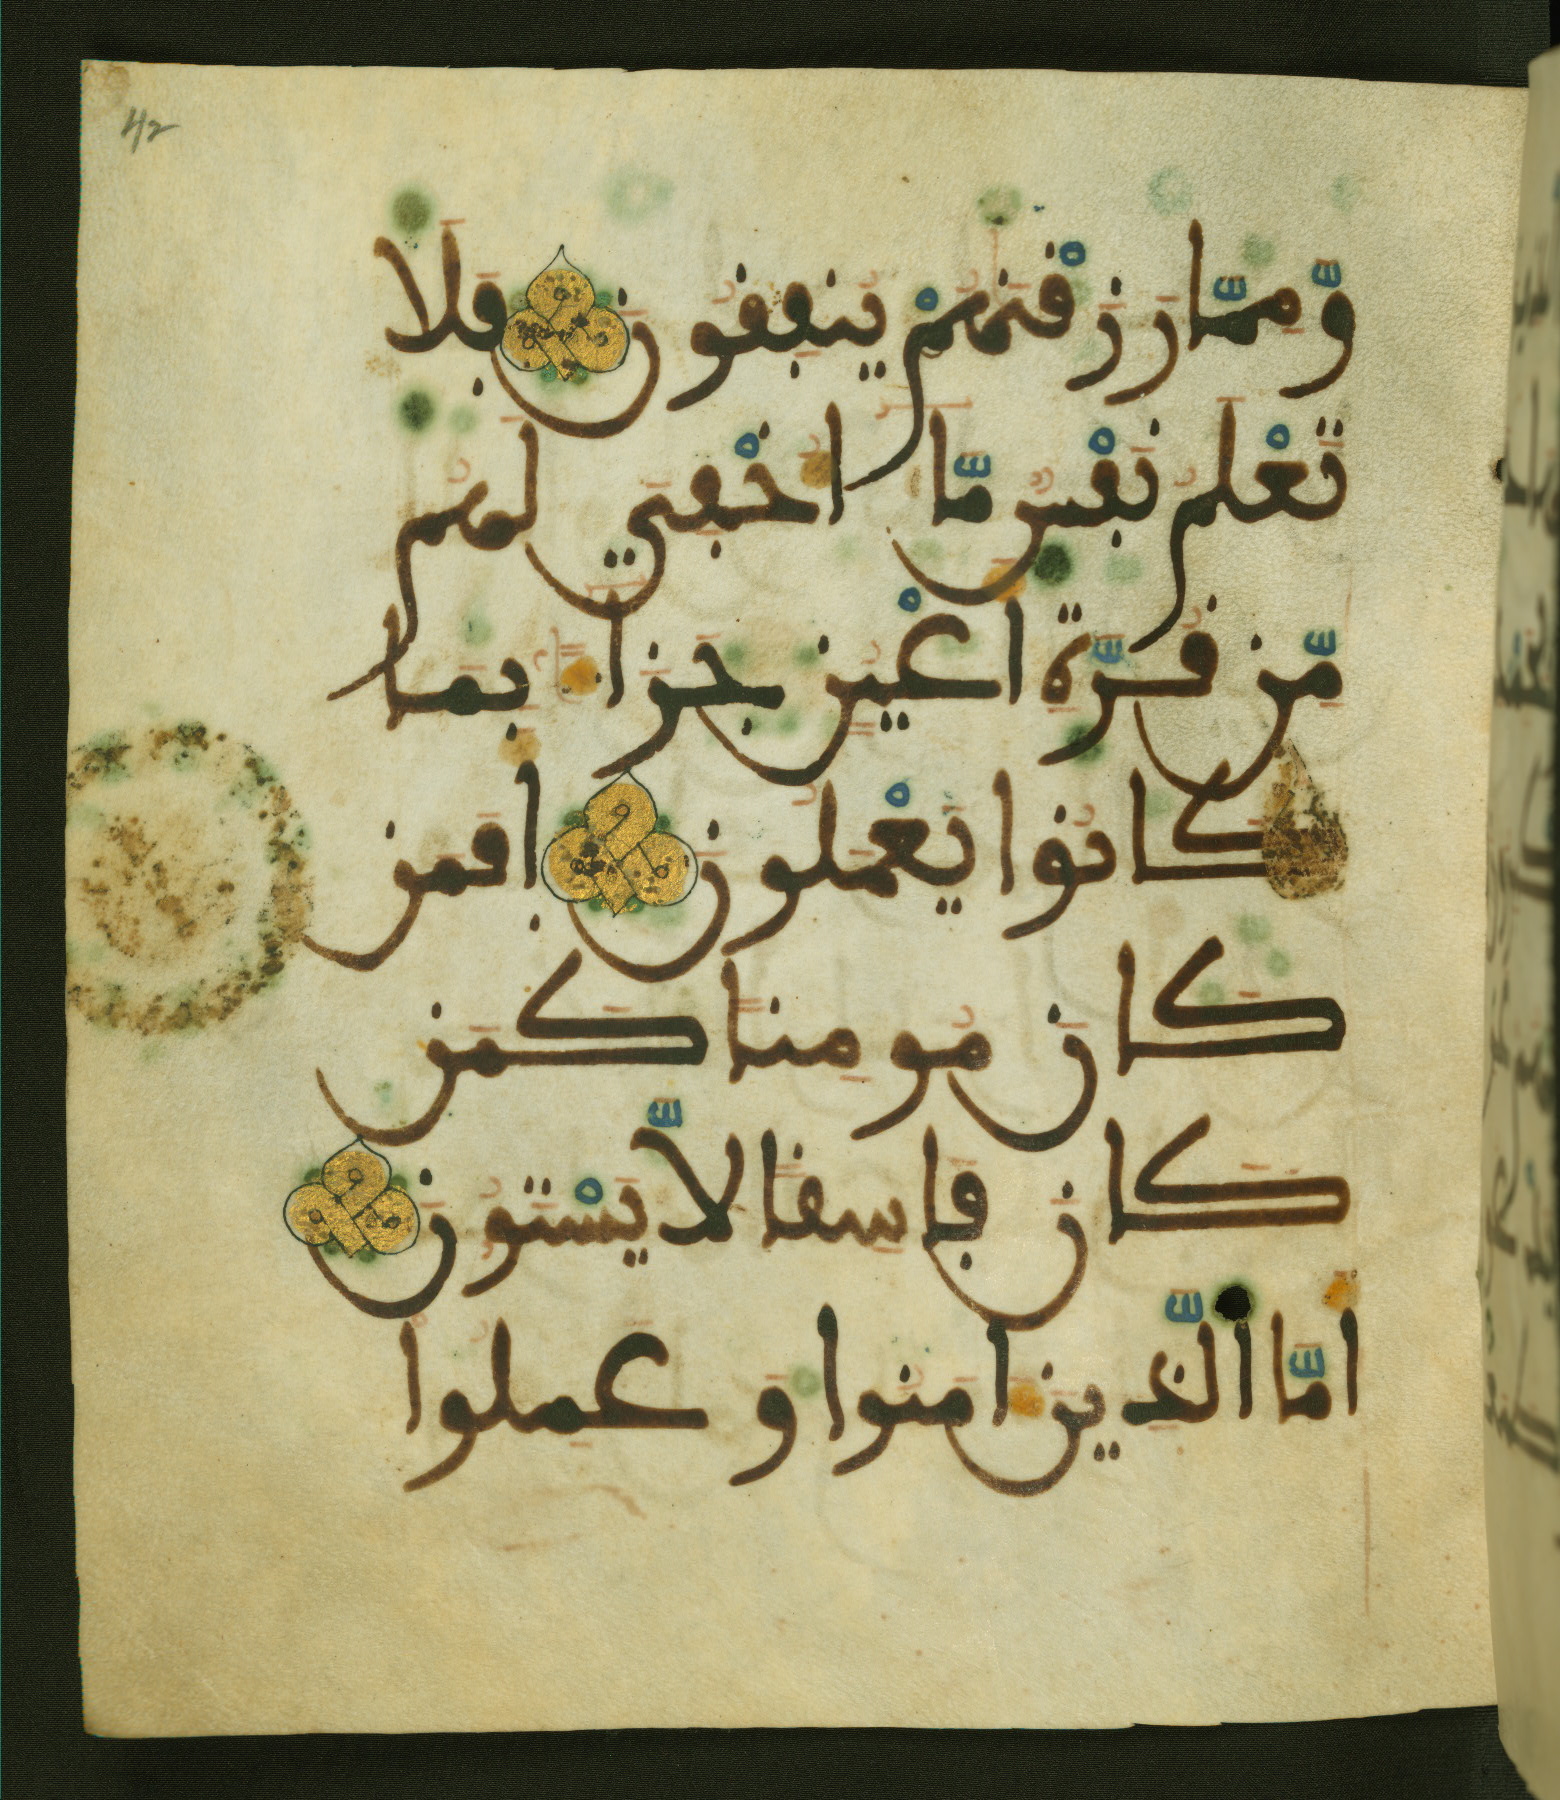 42
وَّمِمَّا رَزَقْنَٰهُمْ يُنفِقُونَ فَلَا
تَعْلَمُ نَفْسٌ مَّا أُخْفِيَ لَهُم
مِّن قُرَّةِ أَعْيُنٍ جَزَاءً بِمَا
كَانُوا يَعْمَلُونَ أَفَمَن
كَانَ مُومِنًا كَمَن
كَانَ فَاسِقًا لَّا يَسْتَوُۥنَ
أَمَّا الَّذِينَ ءَامَنُوا وَعَمِلُوا